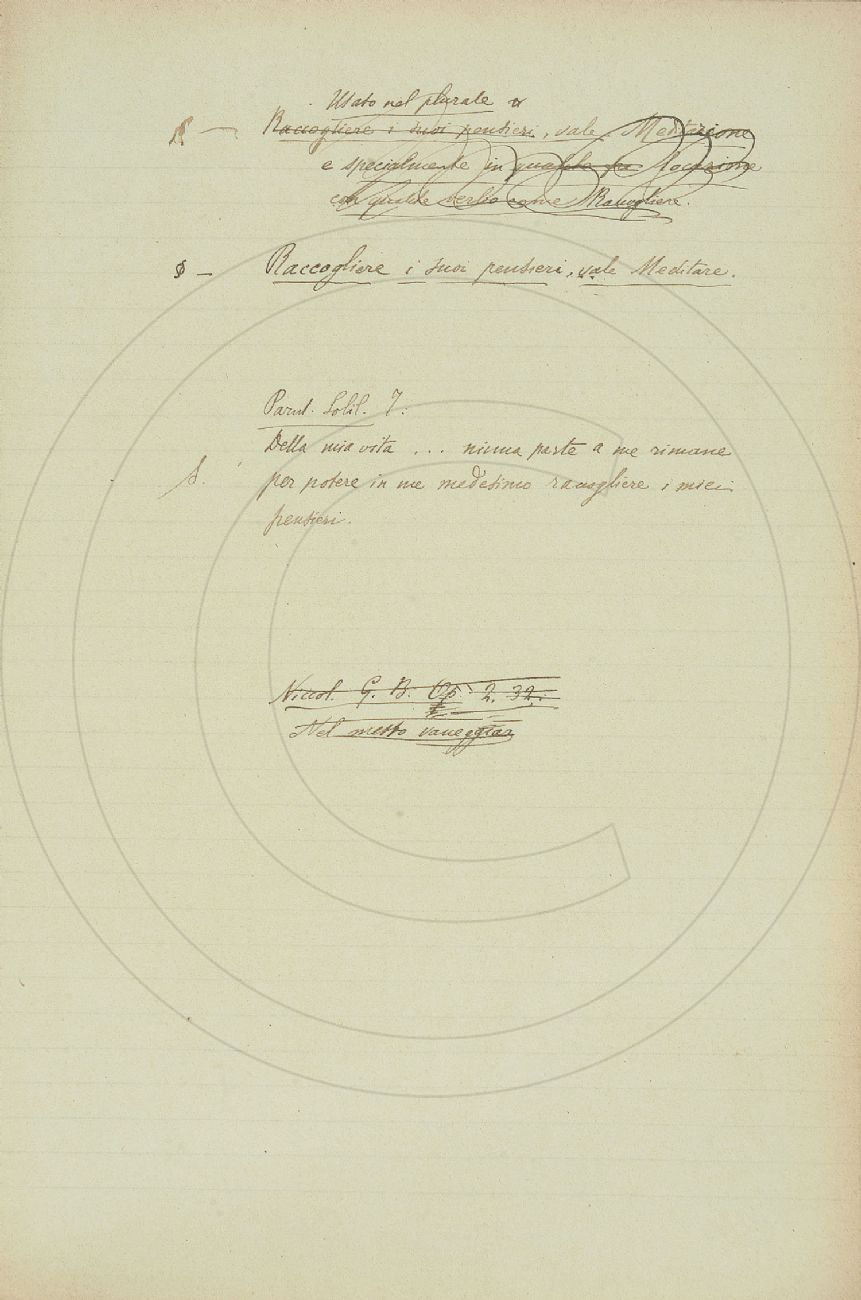 Usato nel plurale
Raccogliere i suoi pensieri, vale Meditazione
e specialmente in qualche locuzione
con qualche verbo come Raccogliere.
§ — Raccogliere i suoi pensieri, vale Meditare.
Parut. Solil. 7.
Della mia vita ... niuna parte a me rimane
S. per potere in me medesimo raccogliere i miei
pensieri.
Niccol. G. B. Op. 2. 32.
Nel mesto vaneggiar